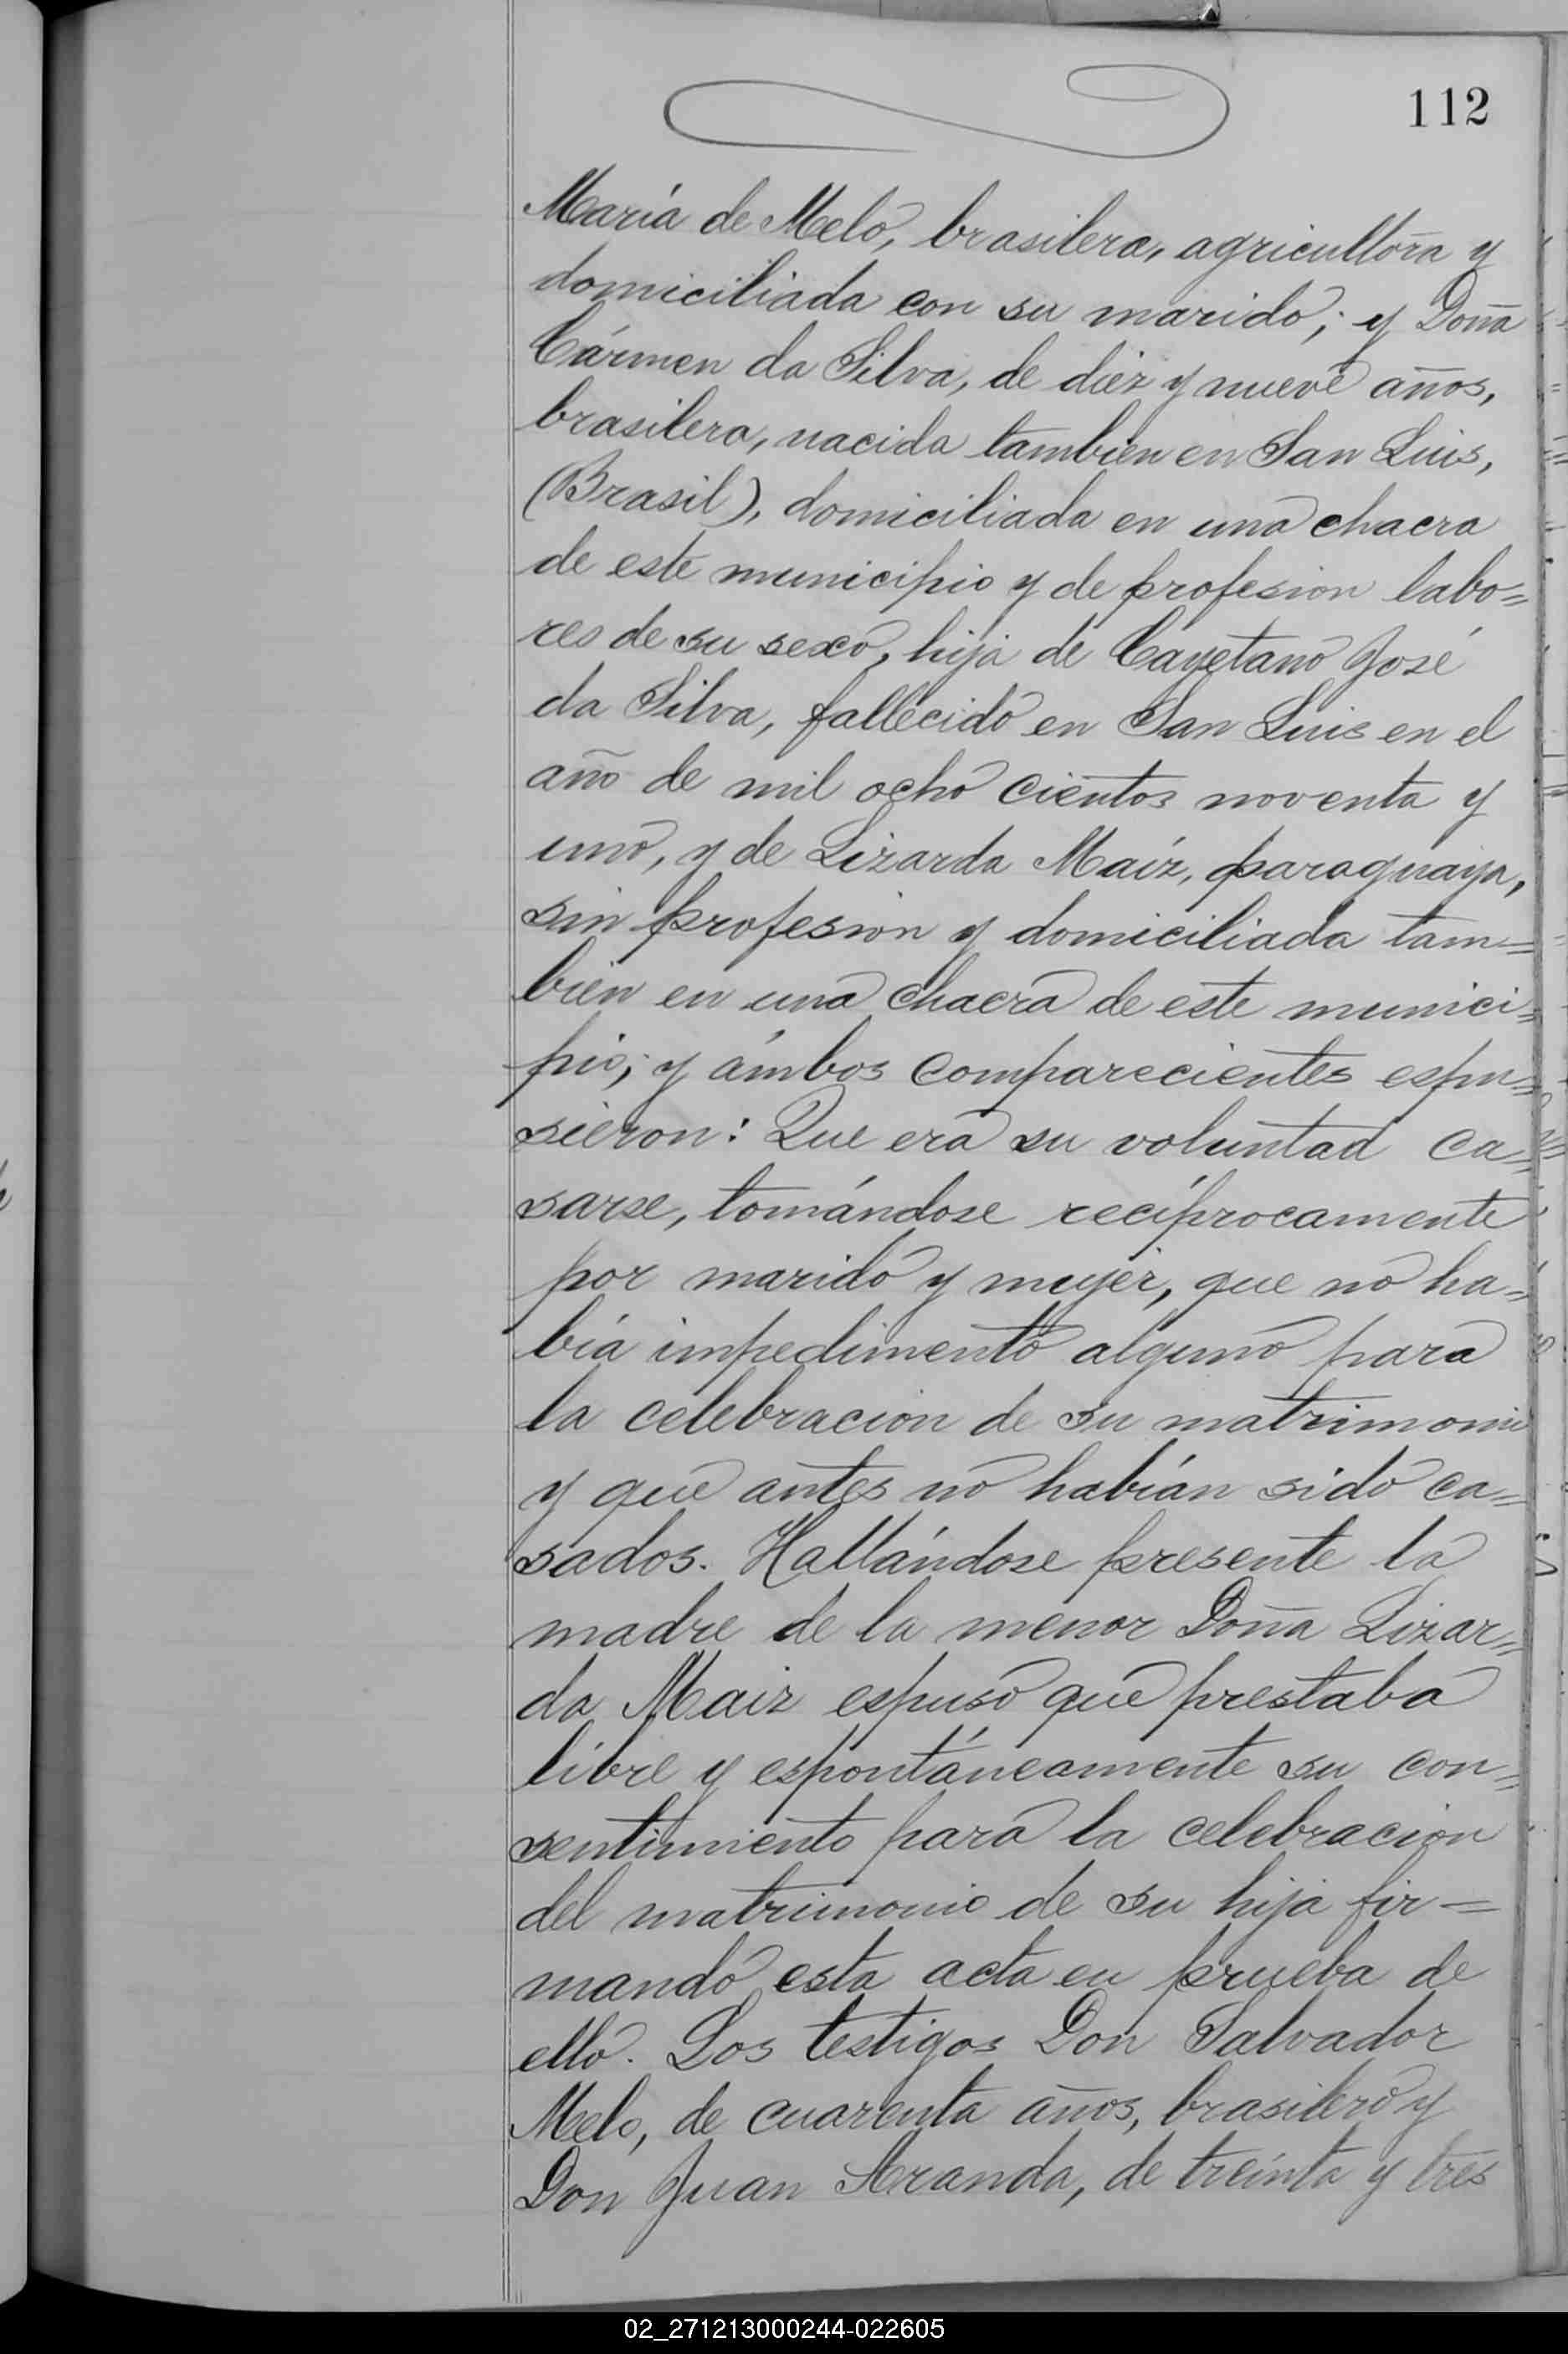 112
María de Melo, brasilera, agricultora y
domiciliada con su marido; y Doña
Cármen da Silva, de diez y nueve años,
brasilera, nacida tambien en San Luis,
(Brasil), domiciliada en una chacra
de este municipio y de profesion labo=
res de su sexo, hija de Cayetano José
da Silva, fallecido en San Luis en el
año de mil ocho cientos noventa y
uno, y de Lizarda Maíz, paraguaya,
sin profesion y domiciliada tam=
bien en una chacra de este munici=
pio; y ámbos comparecientes espu=
sieron: Que era su voluntad ca=
sarse, tomándose recíprocamente
por marido y mujer, que no ha=
bía impedimento alguno para
la celebracion de su matrimonio
y que antes no habían sido ca=
sados. Hallándose presente la
madre de la menor Doña Lizar=
da Maiz espuso que prestaba
libre y espontáneamente su con=
sentimiento para la celebracion
del matrimonio de su hija fir=
mando esta acta en prueba de
ello. Los testigos Don Salvador
Melo, de cuarenta años, brasilero y
Don Juan Aranda, de treinta y tres
02_271213000244-022605